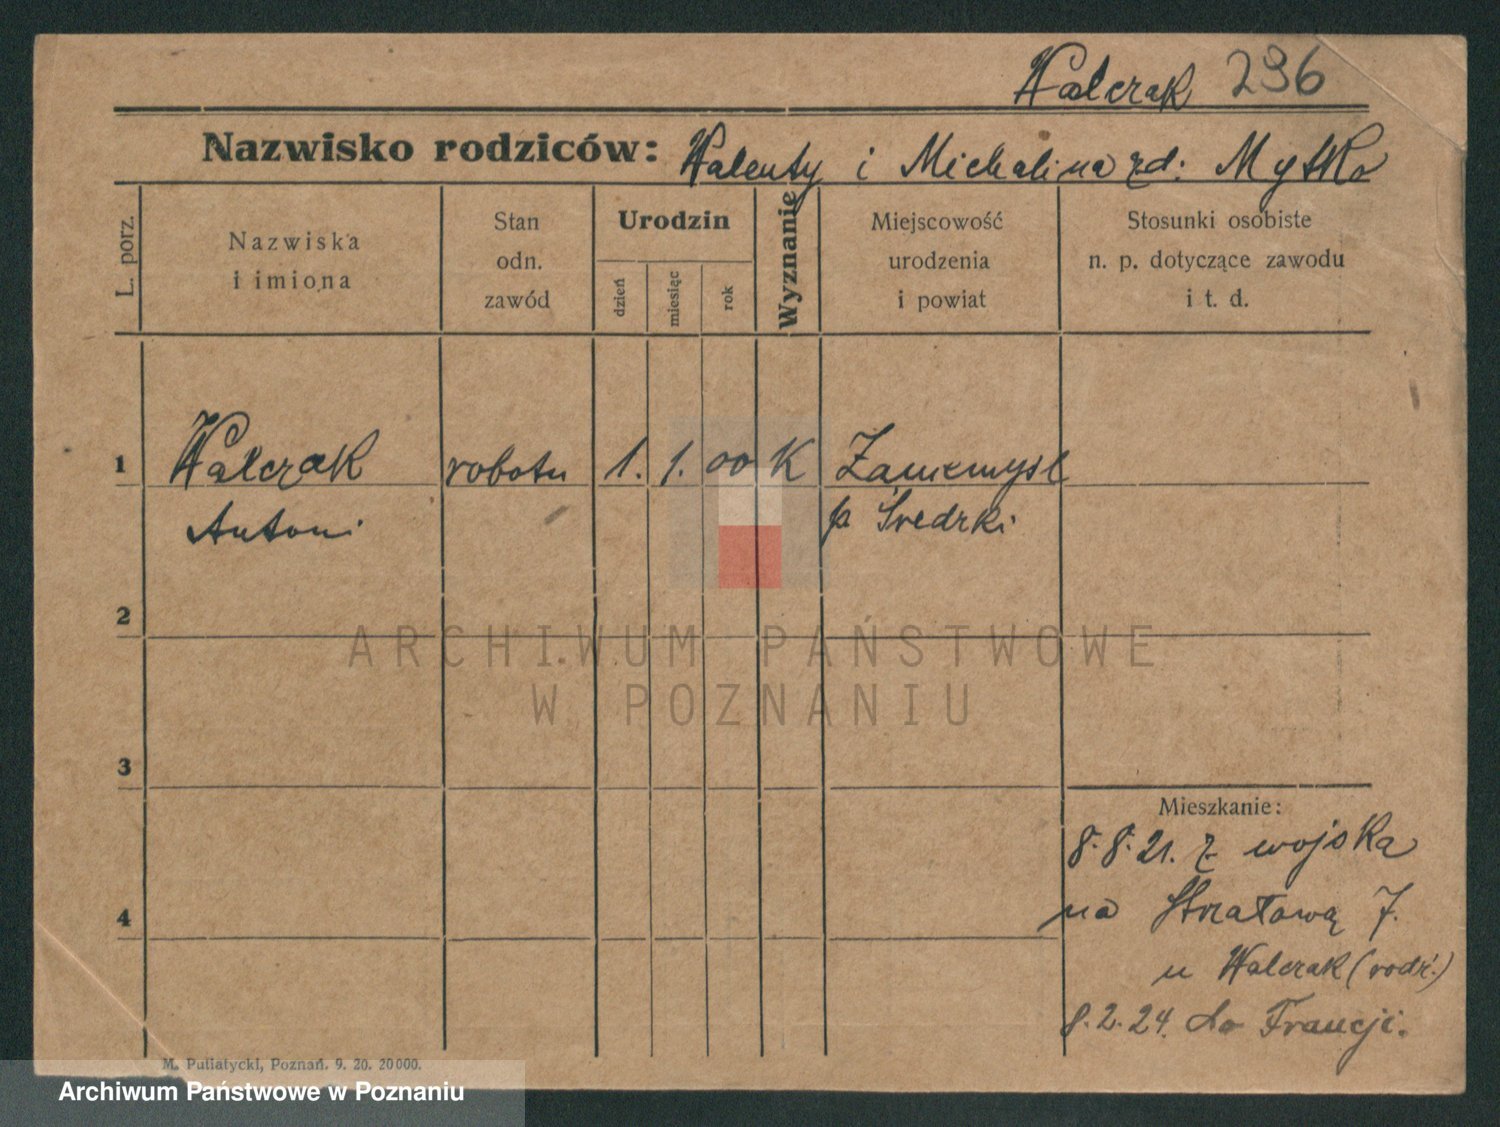 Walczak 296
Nazwisko rodziców: Walenty i Michalina zd: Mytko
L. porz.
Nazwiska
i imiona
Stan
odn.
zawód
Urodzin
dzień
miesiąc
rok
Wyznanie
Miejscowość
urodzenia
i powiat
Stosunki osobiste
n. p. dotyczące zawodu
i t. d.
1 Walczak robotn 1. 1. 00 K Zaniemysl
Antoni p Średzki
2
ARCHIWUM PAŃSTWOWE
W POZNANIU
3
Mieszkanie:
8.8.21. z wojska
4 na Strzałową 7.
u Walczak (rodz.)
8.2.24. do Francji.
M. Putiatycki, Poznań. 9. 20. 20000.
Archiwum Państwowe w Poznaniu